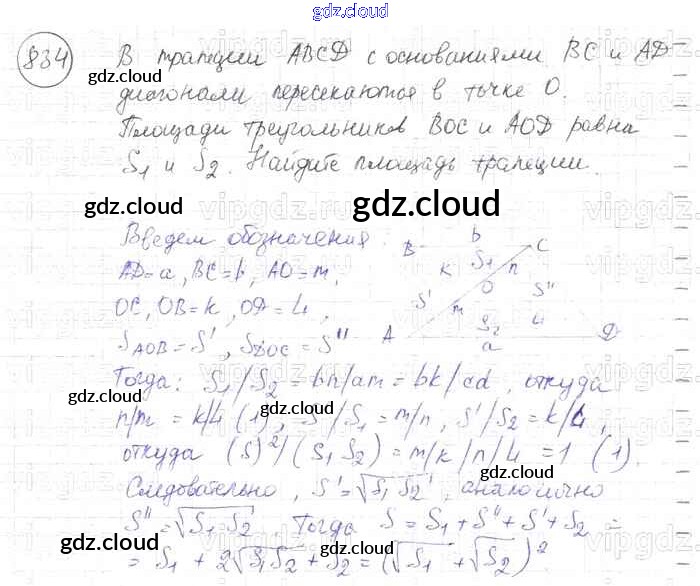 gdz.cloud
834
В трапеции ABCD с основаниями BC и AD
диагонали пересекаются в точке O.
Площади треугольников BOC и AOD равна
S1 и S2. Найдите площадь трапеции.
gdz.cloud gdz.cloud
gdz.cloud
gdz.cloud gdz.cloud
Введем обозначения:
AD=a, BC=b, AO=m,
OC, OB=k, OD=4,
S AOB = S', S DOC = S''
B b C
k S1 n
O
S' S''
m S2 4
A a D
gdz.cloud gdz.cloud
Тогда: S1/S2 = bn/am = bk/cd, откуда
gdz.cloud gdz.cloud
n/m = k/4 (1), S/S1 = m/n, S'/S2 = k/4,
откуда (S)²/(S1 S2) = m/k/n/4 = 1 (1).
gdz.cloud
Следовательно, S' = √S1 S2, аналогично
S'' = √S1 S2. Тогда S = S1 + S'' + S' + S2 =
= S1 + 2√S1S2 + S2 = (√S1 + √S2)².
gdz.cloud gdz.cloud